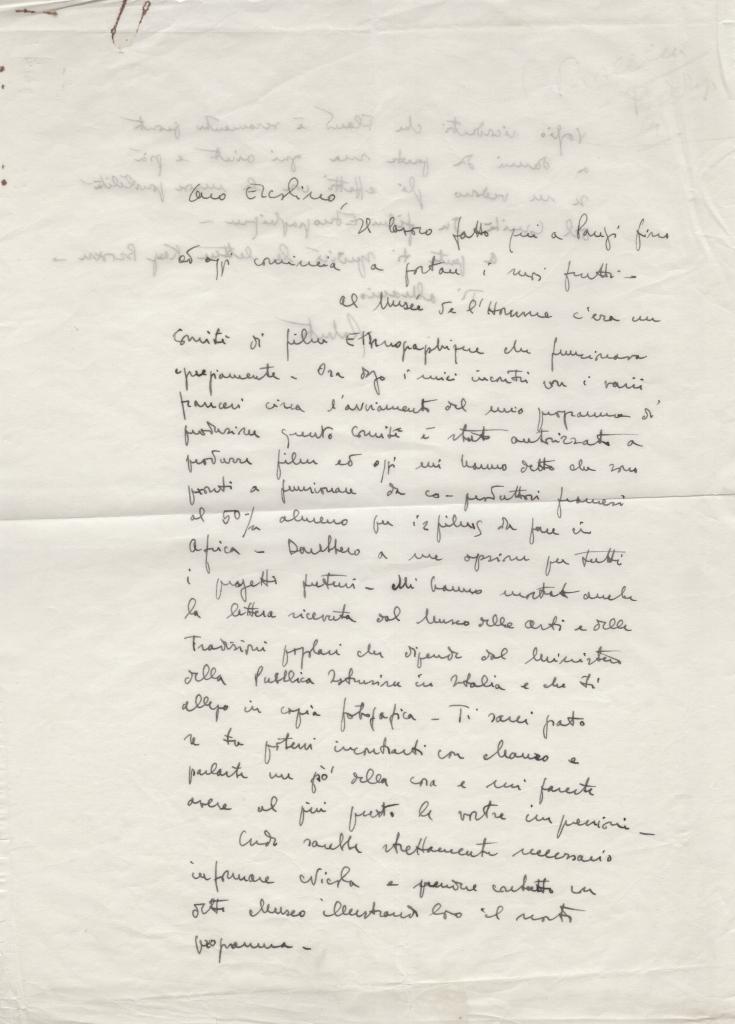 Caro Ercolino,
Il lavoro fatto qui a Parigi fino
ad oggi comincia a portare i suoi frutti -
Al Musée de l'Homme c'era un
Comité di film Ethnographique che funzionava
egregiamente - Ora dopo i miei incontri con i varii
francesi circa l'avviamento del mio programma di
produzione questo Comité è stato autorizzato a
produrre film ed oggi mi hanno detto che sono
pronti a funzionare da co-produttori francesi
al 50% almeno per i 2 films da fare in
Africa - Darebbero a me opzione per tutti
i progetti futuri - Mi hanno mostrato anche
la lettera ricevuta dal Museo delle Arti e delle
Tradizioni popolari che dipende dal Ministero
della Pubblica Istruzione in Italia e che ti
allego in copia fotografica - Ti sarei grato
se tu potessi incontrarti con Mauro e
parlarte un pò della cosa e mi fareste
avere al più presto le vostre impressioni -
Credo sarebbe strettamente necessario
informare Nicola e prendere contatto con
detto Museo illustrando loro il nostro
programma -